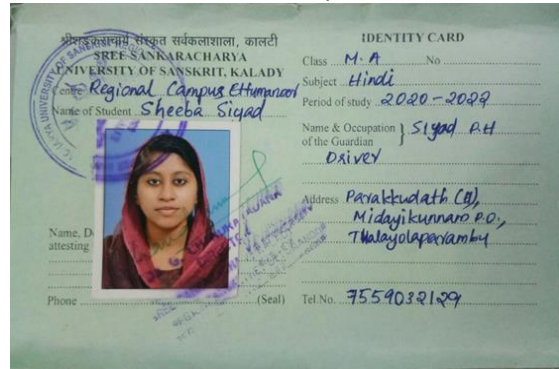 श्रीशङ्कराचार्य संस्कृत सर्वकलाशाला, कालटी
SREE SANKARACHARYA
UNIVERSITY OF SANSKRIT, KALADY
Centre Regional Campus Ettumanoor
Name of Student Sheeba Siyad
Name, D
attesting
Phone
(Seal)
IDENTITY CARD
Class M.A No
Subject Hindi
Period of study 2020-2022
Name & Occupation
of the Guardian } Siyad P.H
Driver
Address Parakkudath (H),
Midayikunnam P.O.,
Thalayolaparambu
Tel.No. 7559032129